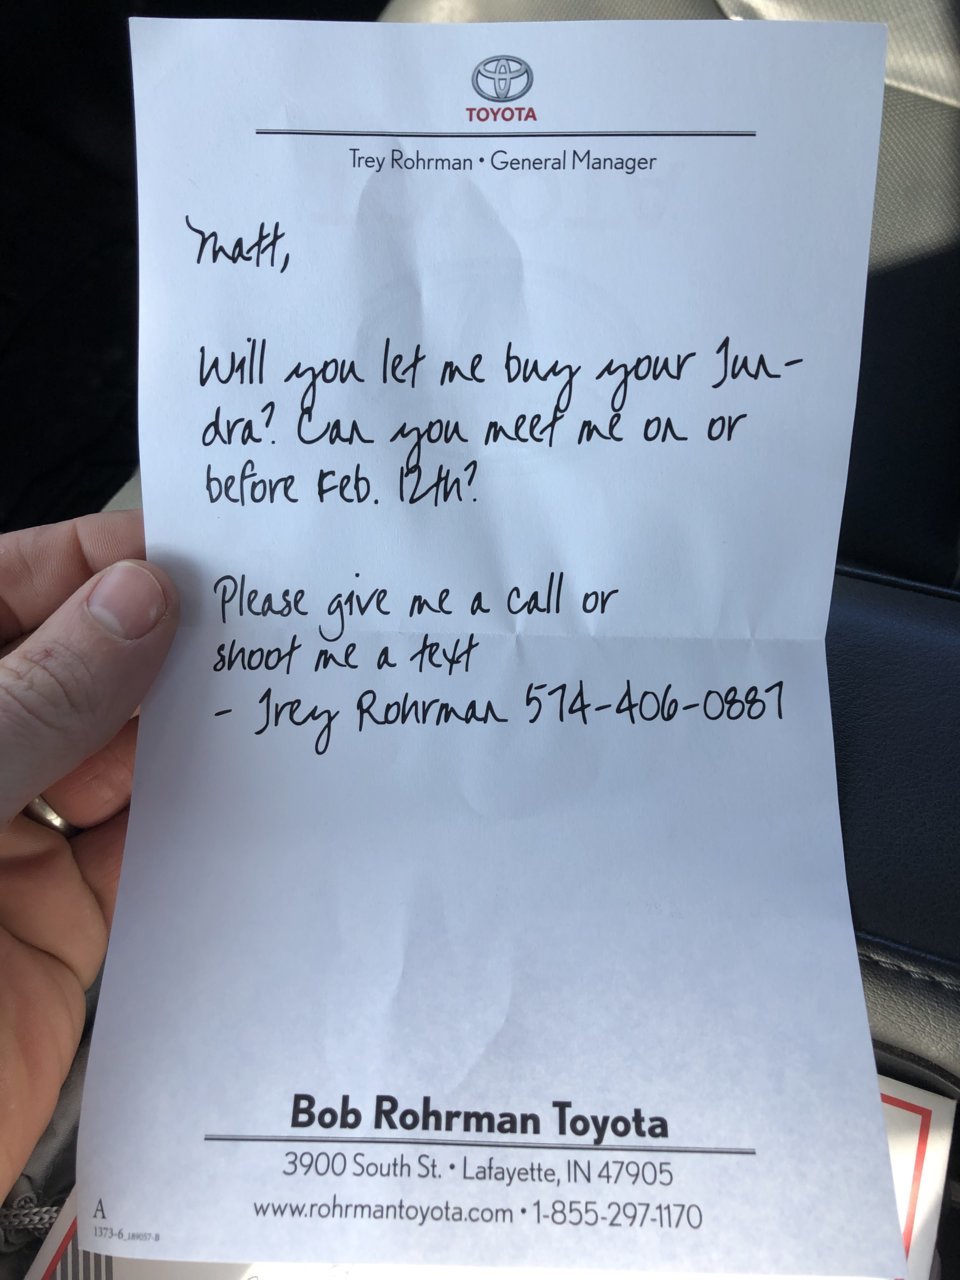 TOYOTA
Trey Rohrman • General Manager
Matt,
Will you let me buy your Tun-
dra? Can you meet me on or
before Feb. 12th?
Please give me a call or
shoot me a text
- Trey Rohrman 574-406-0887
Bob Rohrman Toyota
3900 South St. • Lafayette, IN 47905
www.rohrmantoyota.com • 1-855-297-1170
A
1373-6_189057-B